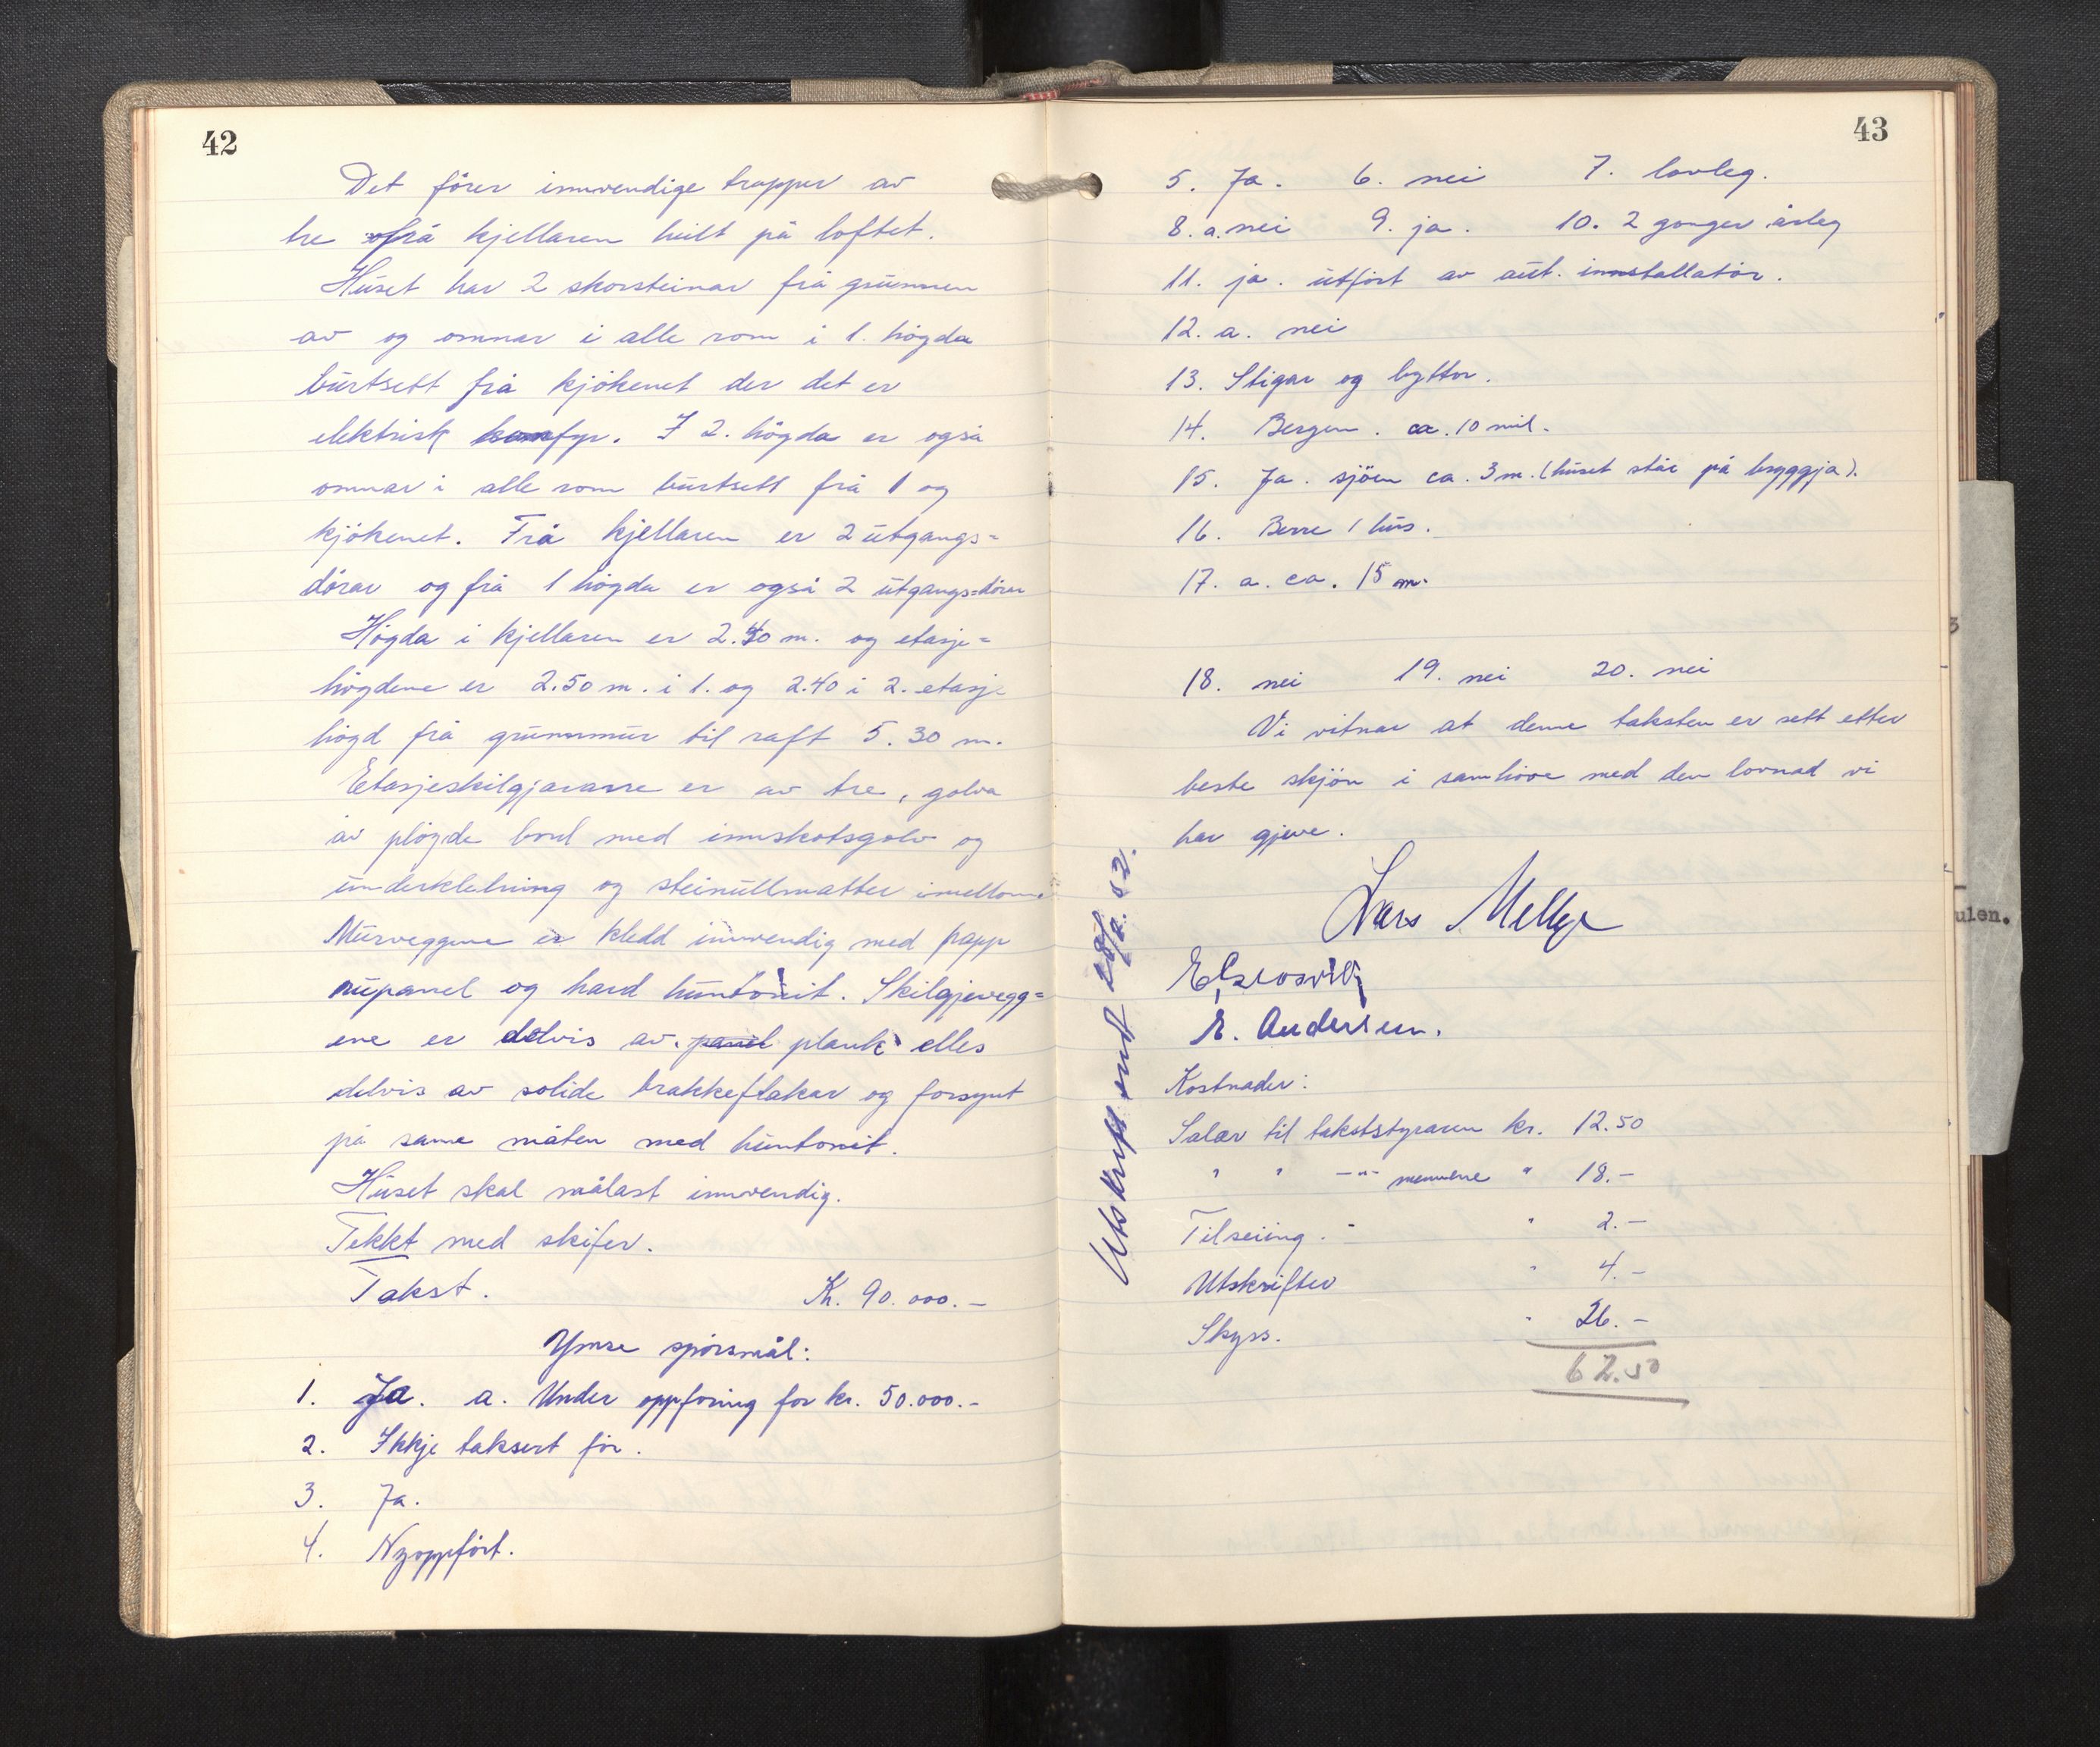 42
Det fører innvendige trapper av
tre frå kjellaren heilt på loftet.
Huset har 2 skorsteinar frå grunnen
av og omnar i alle rom i 1. högda
burtsett frå kjökenet der det er
elektrisk komfyr. I 2. högda er også
omnar i alle rom burtsett frå 1 og
kjökenet. Frå kjellaren er 2 utgangs=
dörar og frå 1 högda er også 2 utgangs=dörer
Högda i kjellaren er 2.40 m. og etasje=
högdene er 2.50 m. i 1. og 2.40 i 2. etasje
högd frå grunnmur til raft 5.30 m.
Etasjeskilgjarane er av tre, golva
av plögde bord med innskotsgolv og
underkledning og steinullmatter imellom.
Murveggene er kledd innvendig med papp
rupanel og hard huntonit. Skilgjevegg=
ene er delvis av panel plank elles
delvis av solide brakkeflakar og forsynt
på same måten med huntonit.
Huset skal målast innvendig.
Tekkt med skifer.
Takst. Kr. 90.000.–
Ymse spörsmål:
1. Ja. a. Under oppföring for kr. 50.000.–
2. Ikkje taksert för.
3. Ja.
4. Nyoppfört.
43
5. Ja. 6. nei 7. lovleg.
8. a. nei 9. ja. 10. 2 gonger årleg
11. ja. utfört av aut. innstallatör.
12. a. nei
13. Stigar og byttor.
14. Bergen. ca. 10 mil.
15. Ja. sjöen ca. 3 m. (huset står på bryggja).
16. Berre 1 hus.
17. a. ca. 15 m.
18. nei 19. nei 20. nei
Vi vitnar at denne taksten er sett etter
beste skjön i samhöve med den lovnad vi
har gjeve.
Lars
E. Andersen.
Utskrift sendt
Kostnader:
Salær til takststyraren kr. 12.50
" " –"– mennene " 18.–
Tilseiing. " 2.–
Utskrifter " 4.–
Skyss. " 26.–
62.50
ulen.